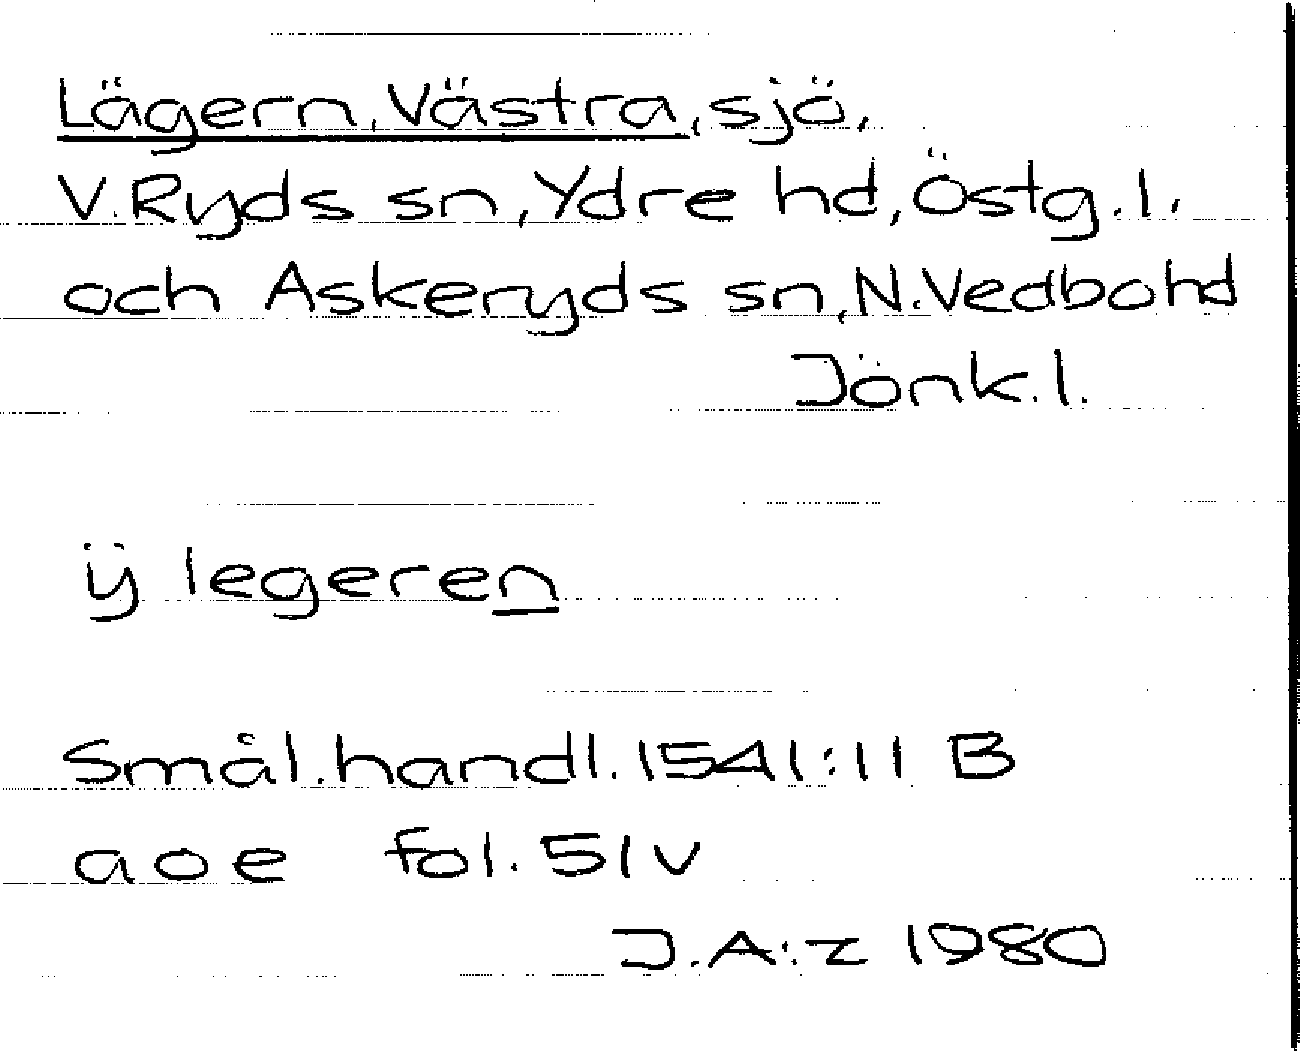 Lägern, Västra, sjö,
V. Ryds sn, Ydre hd, Östg. l.
och Askeryds sn, N. Vedbo hd
Jönk. l.
ÿ legeren
Smål. handl. 1541:11 B
a o e fol. 51 v
J. A:z 1980